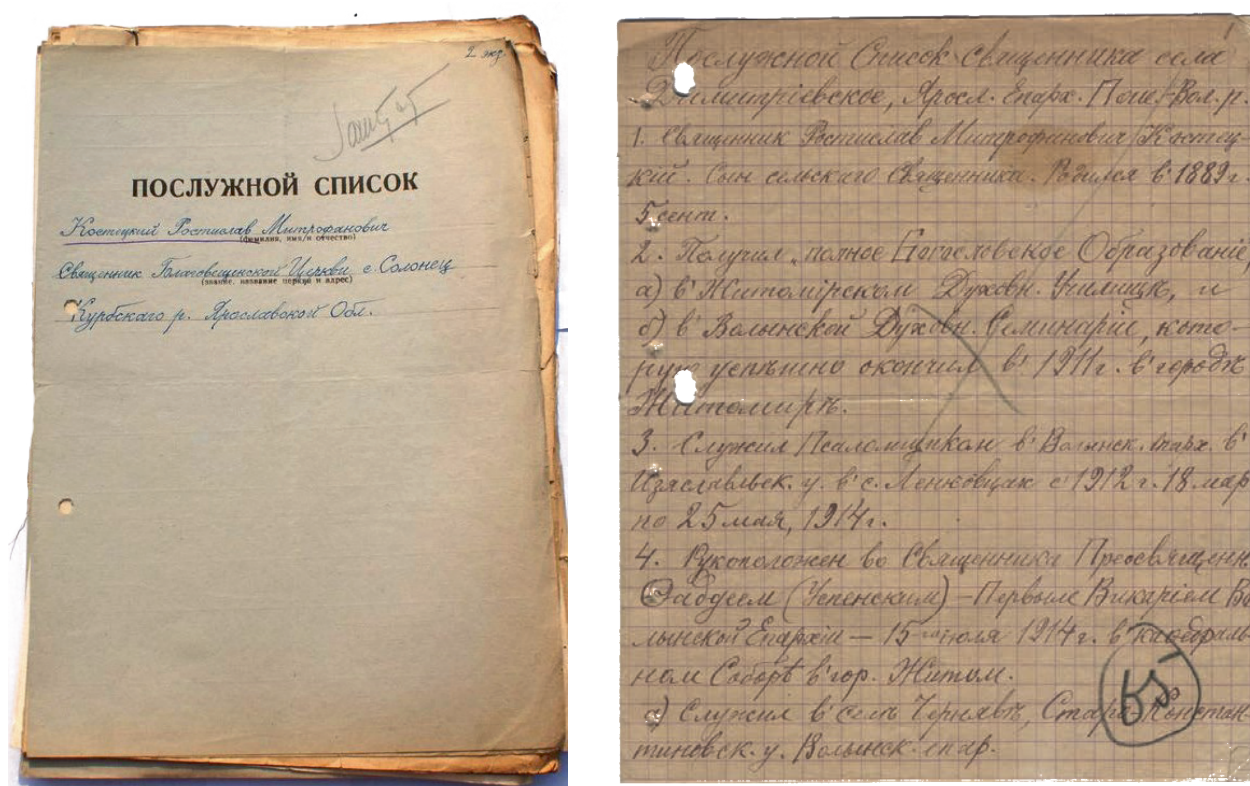 2 экз.
ПОСЛУЖНОЙ СПИСОК
Костецкий Ростислав Митрофанович
(фамилия, имя и отчество)
Священник Благовещенской Церкви с. Солонец
(звание, название церкви и адрес)
Курбскаго р. Ярославской Обл.
Послужной Список Священника села
Димитріевское, Яросл. Епарх. Пеше-Вол. р.
1. Священник Ростислав Митрофанович Костец-
кій. Сын сельскаго Священника. Родился в 1889 г.
5 сент.
2. Получил полное Богословское Образованіе,
а) в Житомірском Духовн. Училищѣ, и
б) в Волынской Духовн. Семинаріи, кото-
рую успѣшно окончил в 1911 г. в городѣ
Житомирѣ.
3. Служил Псаломщиком в Волынск. епарх. в
Изяславльск. у. в с. Ленковцах с 1912 г. 18 мар
по 25 мая, 1914 г.
4. Рукоположен во Священника Преосвященн.
Фадеем (Успенским) – Первым Викаріем Во
лынской Епархіи – 15 іюля 1914 г. в каөедраль
ном Соборѣ в гор. Житом.
а) Служил в селѣ Чернявѣ, Старо-Констан
тиновск. у. Волынск. епар.
65